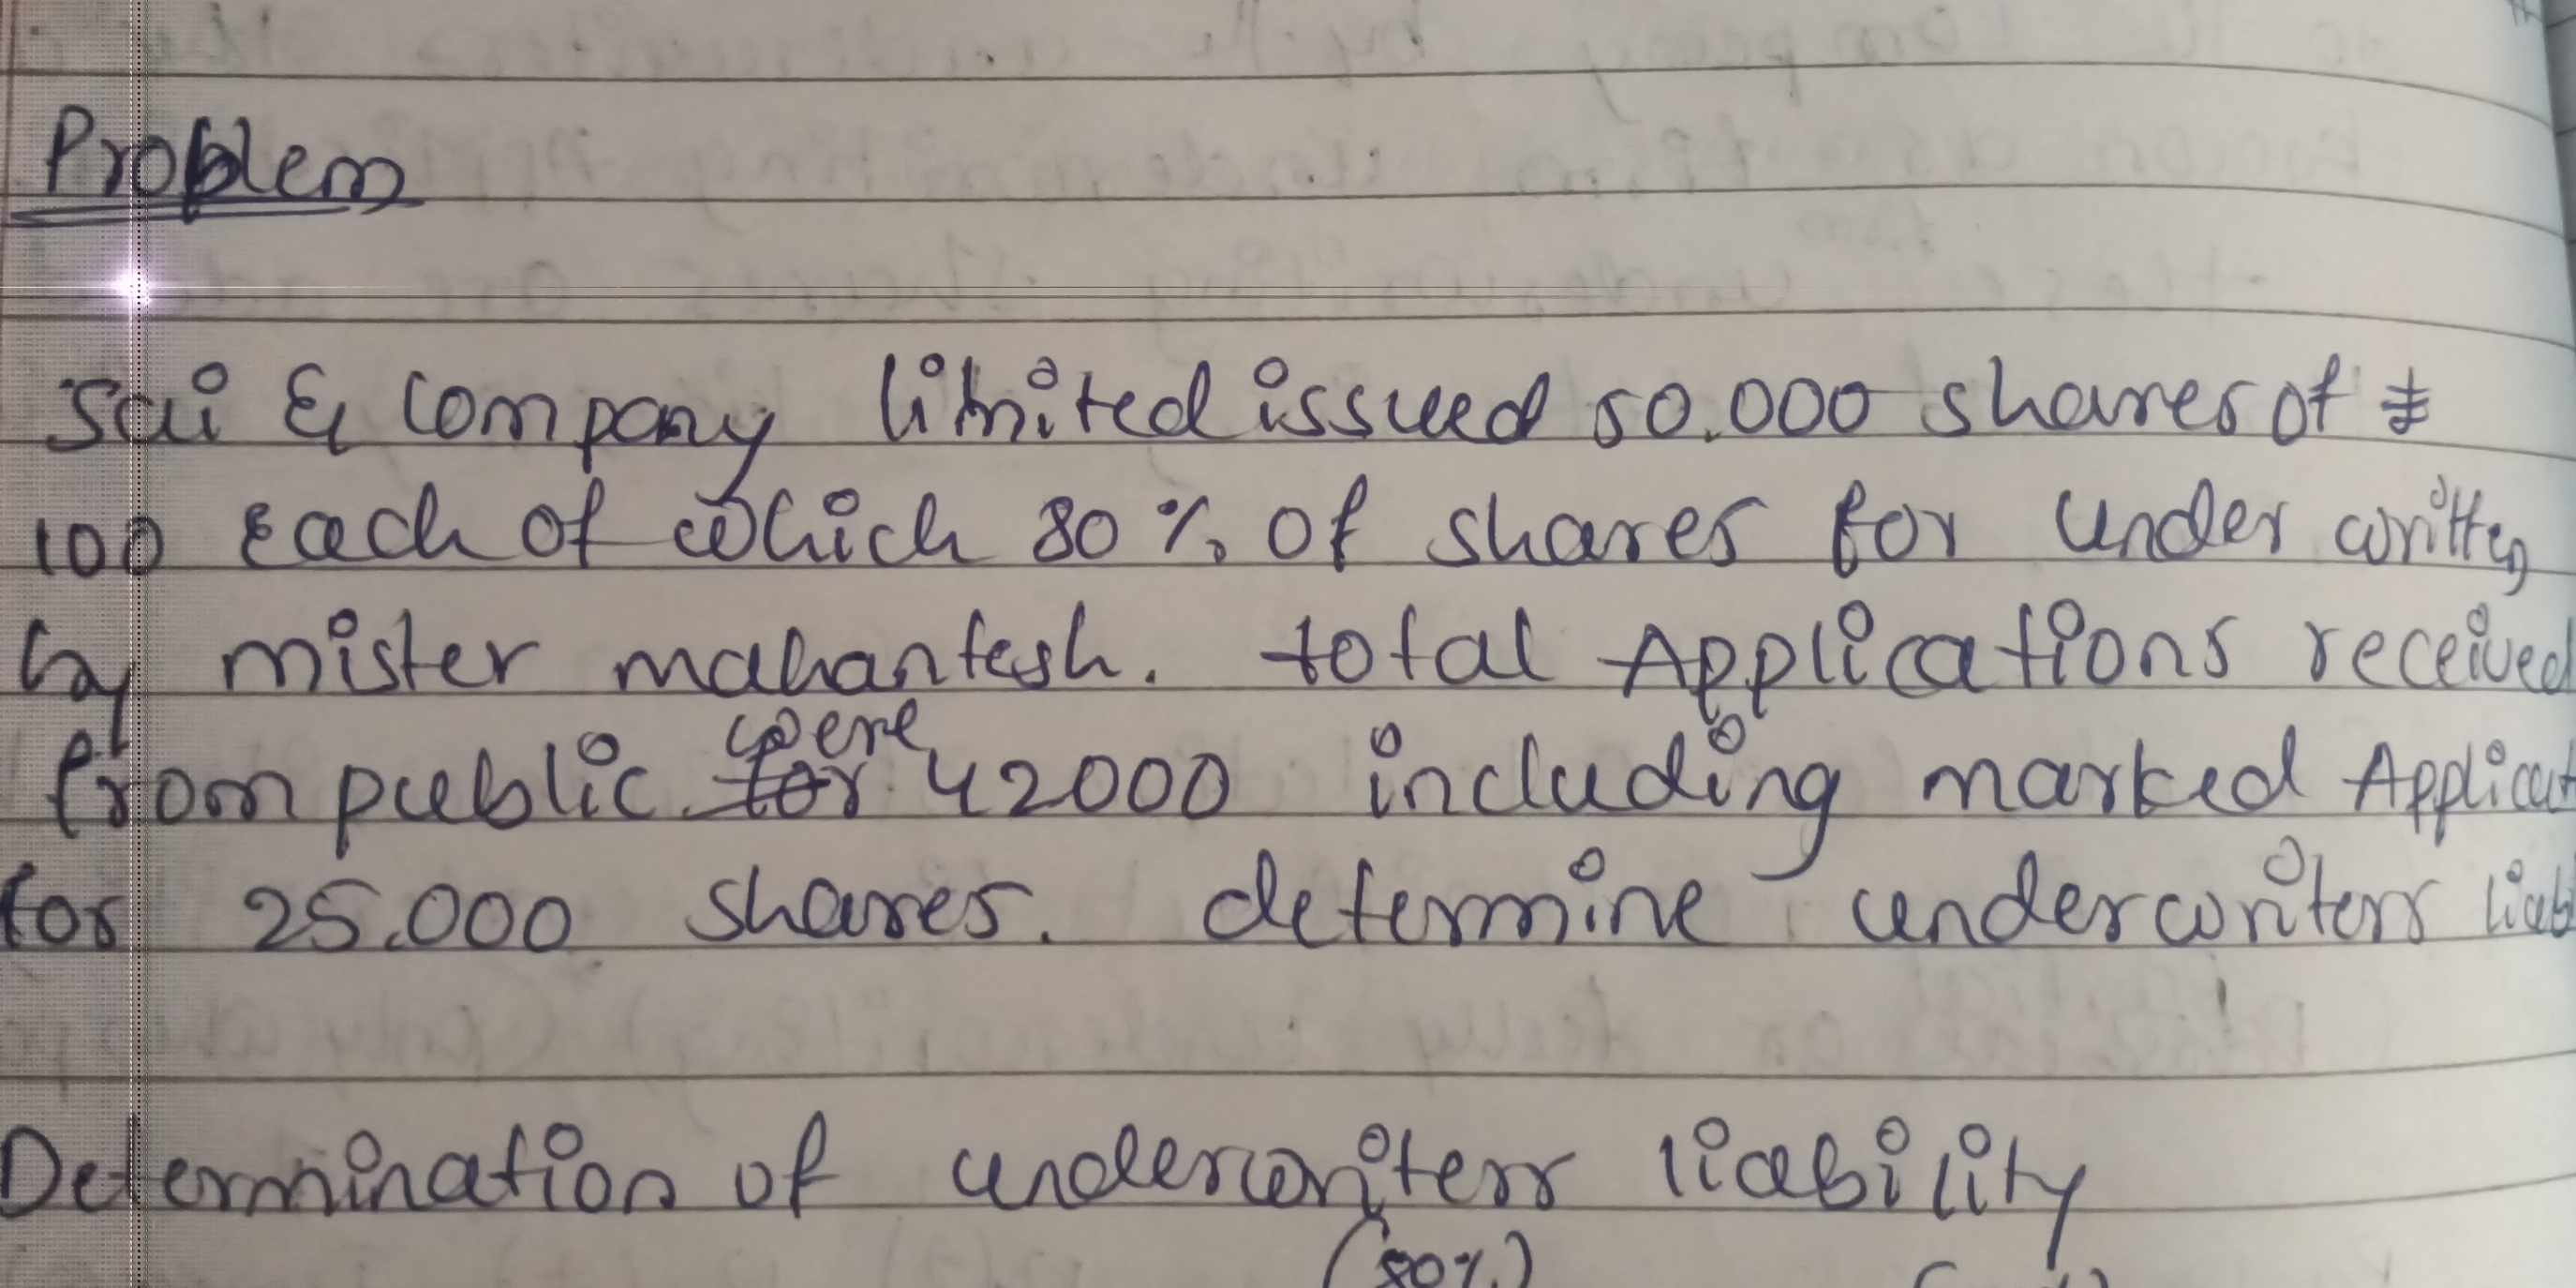 Problem
Sai & Company limited issued 50.000 shares of ₹
100 each of which 80% of shares for under written
by mister mahantesh. total Applications received
from public were for 42000 including marked Applicat
for 25.000 shares. determine underwriters liab
Determination of underwriters liability
(80%)